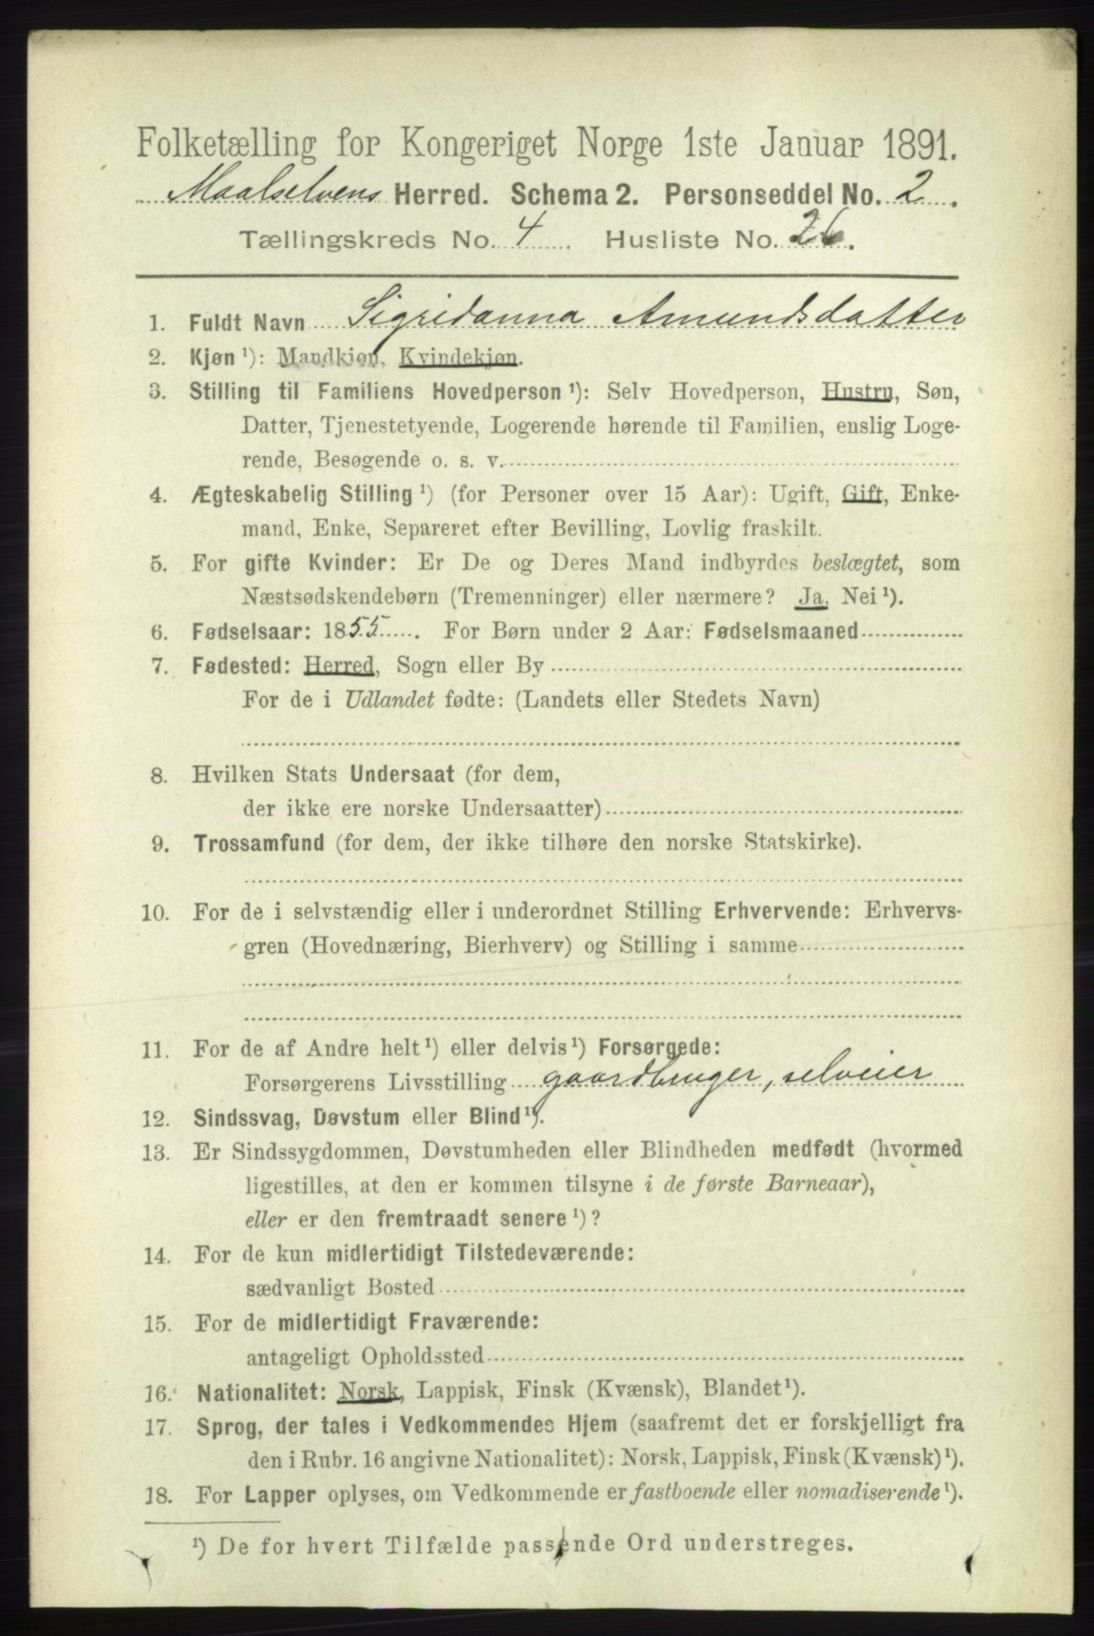 Folketælling for Kongeriget Norge 1ste Januar 1891.
Maalselvens Herred. Schema 2. Personseddel No. 2.
Tællingskreds No. 4 Husliste No. 26.
1. Fuldt Navn Sigridanna Amundsdatter
2. Kjøn ¹): Mandkjøn, Kvindekjøn.
3. Stilling til Familiens Hovedperson ¹): Selv Hovedperson, Hustru, Søn,
Datter, Tjenestetyende, Logerende hørende til Familien, enslig Loge-
rende, Besøgende o. s. v.
4. Ægteskabelig Stilling ¹) (for Personer over 15 Aar): Ugift, Gift, Enke-
mand, Enke, Separeret efter Bevilling, Lovlig fraskilt.
5. For gifte Kvinder: Er De og Deres Mand indbyrdes beslægtet, som
Næstsødskendebørn (Tremenninger) eller nærmere? Ja, Nei ¹).
6. Fødselsaar: 1855. For Børn under 2 Aar: Fødselsmaaned
7. Fødested: Herred, Sogn eller By
For de i Udlandet fødte: (Landets eller Stedets Navn)
8. Hvilken Stats Undersaat (for dem,
der ikke ere norske Undersaatter)
9. Trossamfund (for dem, der ikke tilhøre den norske Statskirke).
10. For de i selvstændig eller i underordnet Stilling Erhvervende: Erhvervs-
gren (Hovednæring, Bierhverv) og Stilling i samme
11. For de af Andre helt ¹) eller delvis ¹) Forsørgede:
Forsørgerens Livsstilling gaardbruger, selveier
12. Sindssvag, Døvstum eller Blind ¹).
13. Er Sindssygdommen, Døvstumheden eller Blindheden medfødt (hvormed
ligestilles, at den er kommen tilsyne i de første Barneaar),
eller er den fremtraadt senere ¹)?
14. For de kun midlertidigt Tilstedeværende:
sædvanligt Bosted
15. For de midlertidigt Fraværende:
antageligt Opholdssted
16. Nationalitet: Norsk, Lappisk, Finsk (Kvænsk), Blandet ¹).
17. Sprog, der tales i Vedkommendes Hjem (saafremt det er forskjelligt fra
den i Rubr. 16 angivne Nationalitet): Norsk, Lappisk, Finsk (Kvænsk) ¹).
18. For Lapper oplyses, om Vedkommende er fastboende eller nomadiserende ¹).
¹) De for hvert Tilfælde passende Ord understreges.